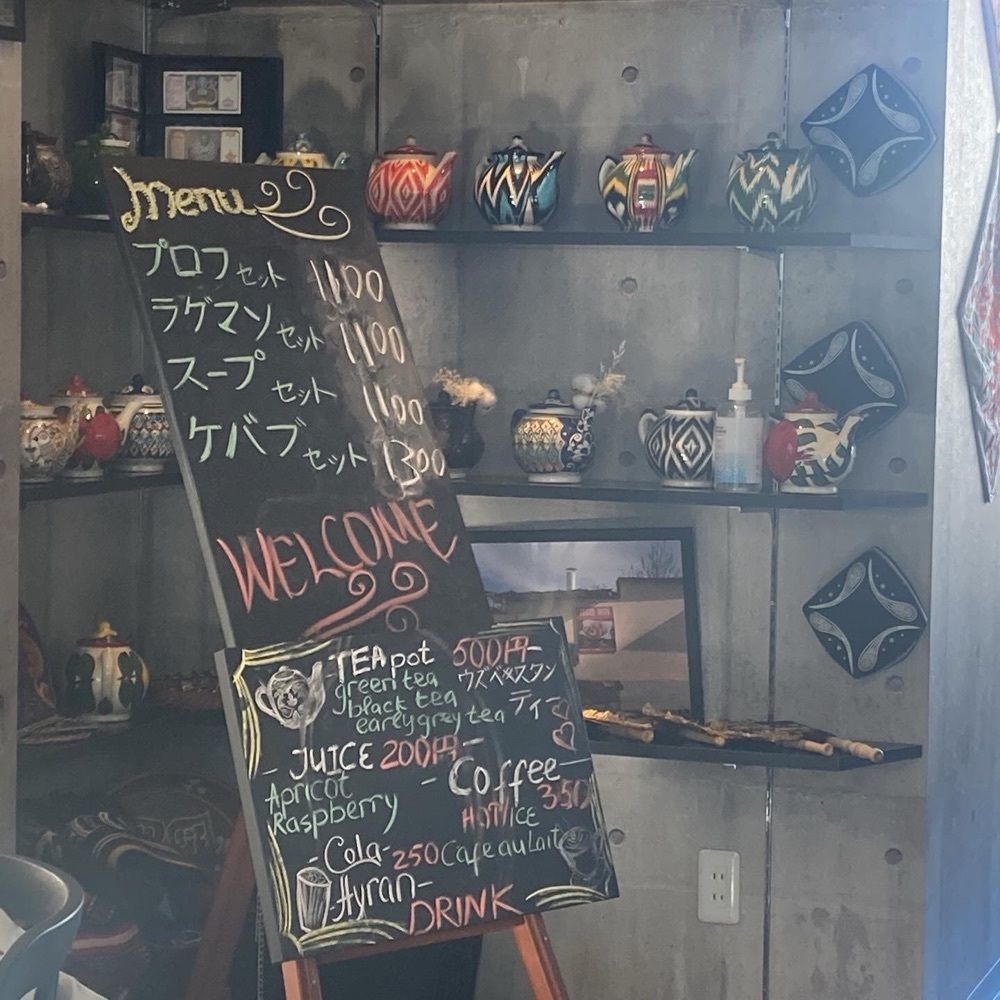 menu
プロフセット 1100
ラグマンセット 1100
スープセット 1100
ケバブセット 1300
WELCOME
TEA pot 500円-
green tea
black tea
early grey tea
ウズベキスタン
ティー
- JUICE 200円-
Apricot
Raspberry
- Coffee -
350
HOT/ICE
Cafe au Lait
- Cola- 250
-Ayran-
DRINK